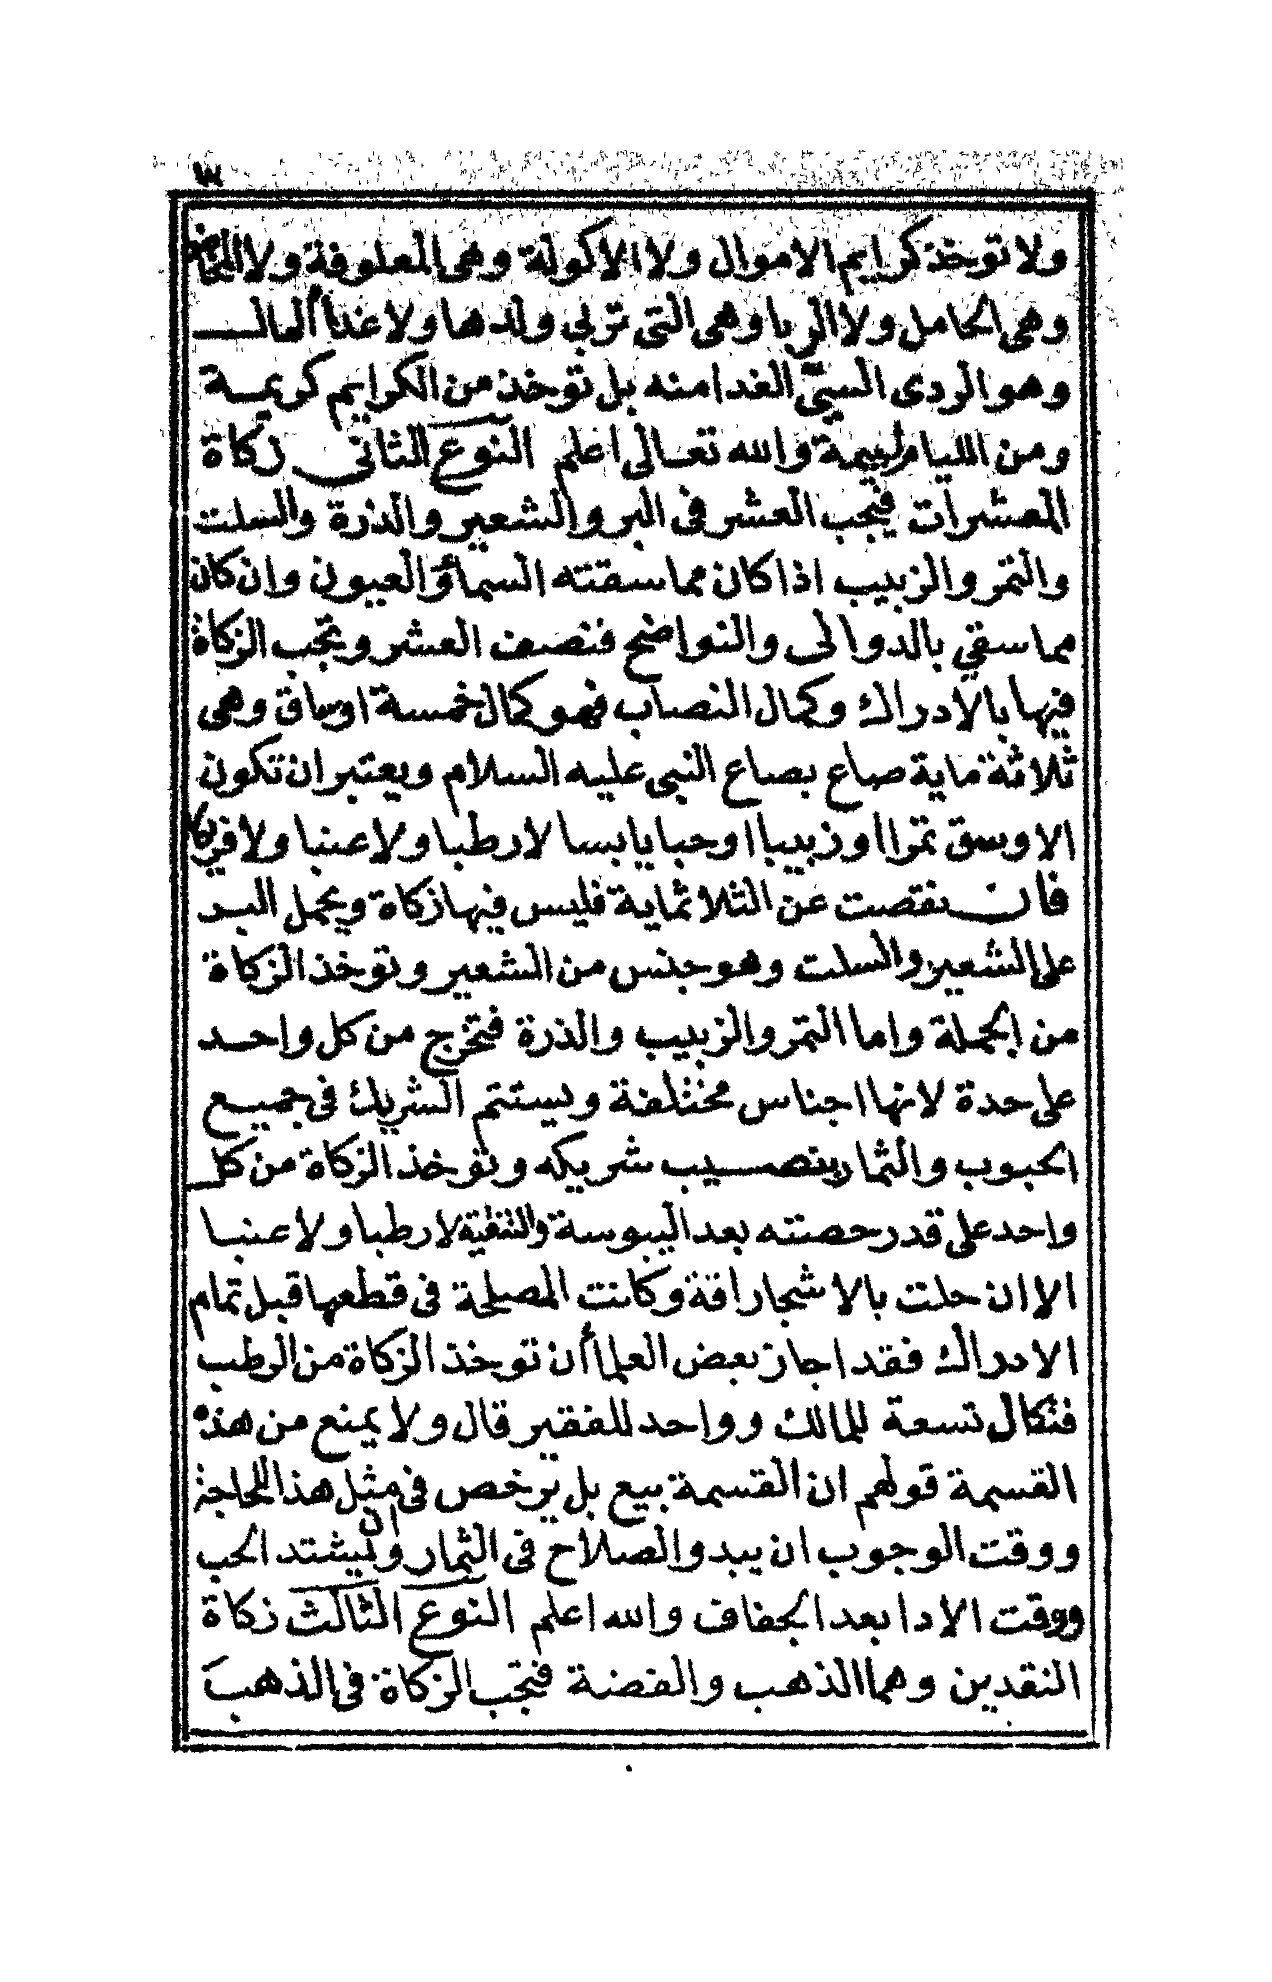 ولا توخذ كرايم الاموال ولا الاكولة وهى المعلوفة ولا المخاض
وهى الحامل ولا الربا وهى التى تربى ولدها ولا غذاأ المالـــ
وهو الردى السيّى الغدا منه بل توخذ من الكرايم كريمــة
ومن الليام لييمة والله تعــالى اعلم النوع الثانى زكاة
المعشرات فيجب العشر فى البر والشعير والذرة والسلت
والتمر والزبيب اذا كان مما سقته السماؤ والعيون وان كان
مما سقي بالدوالى والنواضح فنصف العشر وتجب الزكاة
فيها بالادراك وكمال النصاب فهو كمال خمسة اوساق وهى
ثلاثة ماية صاع بصاع النبى عليه السلام ويعتبر ان تكون
الاوسق تمرا او زبيبا او حبا يابسا لا رطبا ولا عنبا ولا فريكا
فان نقصت عن الثلاثماية فليس فيها زكاة ويحمل البــر
على الشعير والسلت وهو جنس من الشعير وتوخذ الزكاة
من الجملة واما التمر والزبيب والذرة فتخرج من كل واحــد
على حدة لانها اجناس مختلفة ويستتم الشريك فى جميــع
الحبوب والثمار بنصــيب شريكه وتوخذ الزكاة من كلــ
واحد على قدر حصته بعد اليبوسة والتنقية لا رطبا ولا عنبــا
الا ان حلت بالاشجار افة وكانت المصلحة فى قطعها قبل تمام
الادراك فقد اجاز بعض العلماأ ان توخذ الزكاة من الرطب
فتكال تسعة للمالك وواحد للفقير قال ولا يمنع من هذه
القسمة قولهم ان القسمة بيع بل يرخص فى مثل هذا للحاجة
ووقت الوجوب ان يبدو الصلاح فى الثمار وان يشتد الحب
ووقت الادا بعد الجفاف والله اعلم النوع الثالث زكاة
النقدين وهما الذهب والفضة فتجب الزكاة فى الذهب